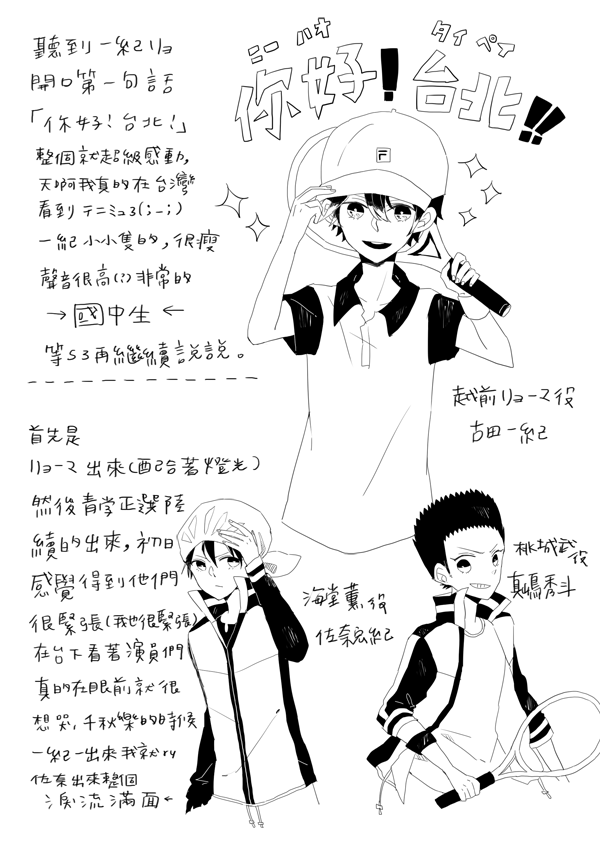 聽到一紀リョ
開口第一句話
「你好!台北!」
整個就超級感動,
天啊我真的在台灣
看到テニミュ3(;_;)
一紀小小隻的,很瘦
聲音很高(?)非常的
→國中生←
等S3再繼續說說。
ニー ハオ タイ ペイ
你好!台北!!
F
越前リョーマ役
古田一紀
首先是
リョーマ出來(配合著燈光)
然後青学正選陸
續的出來,初日
感覺得到他們
很緊張(我也很緊張)
在台下看著演員們
真的在眼前就很
想哭,千秋樂的時候
一紀一出來我就ry
佐奈出來整個
淚流滿面←
海堂薫役
佐奈宏紀
桃城武役
眞嶋秀斗